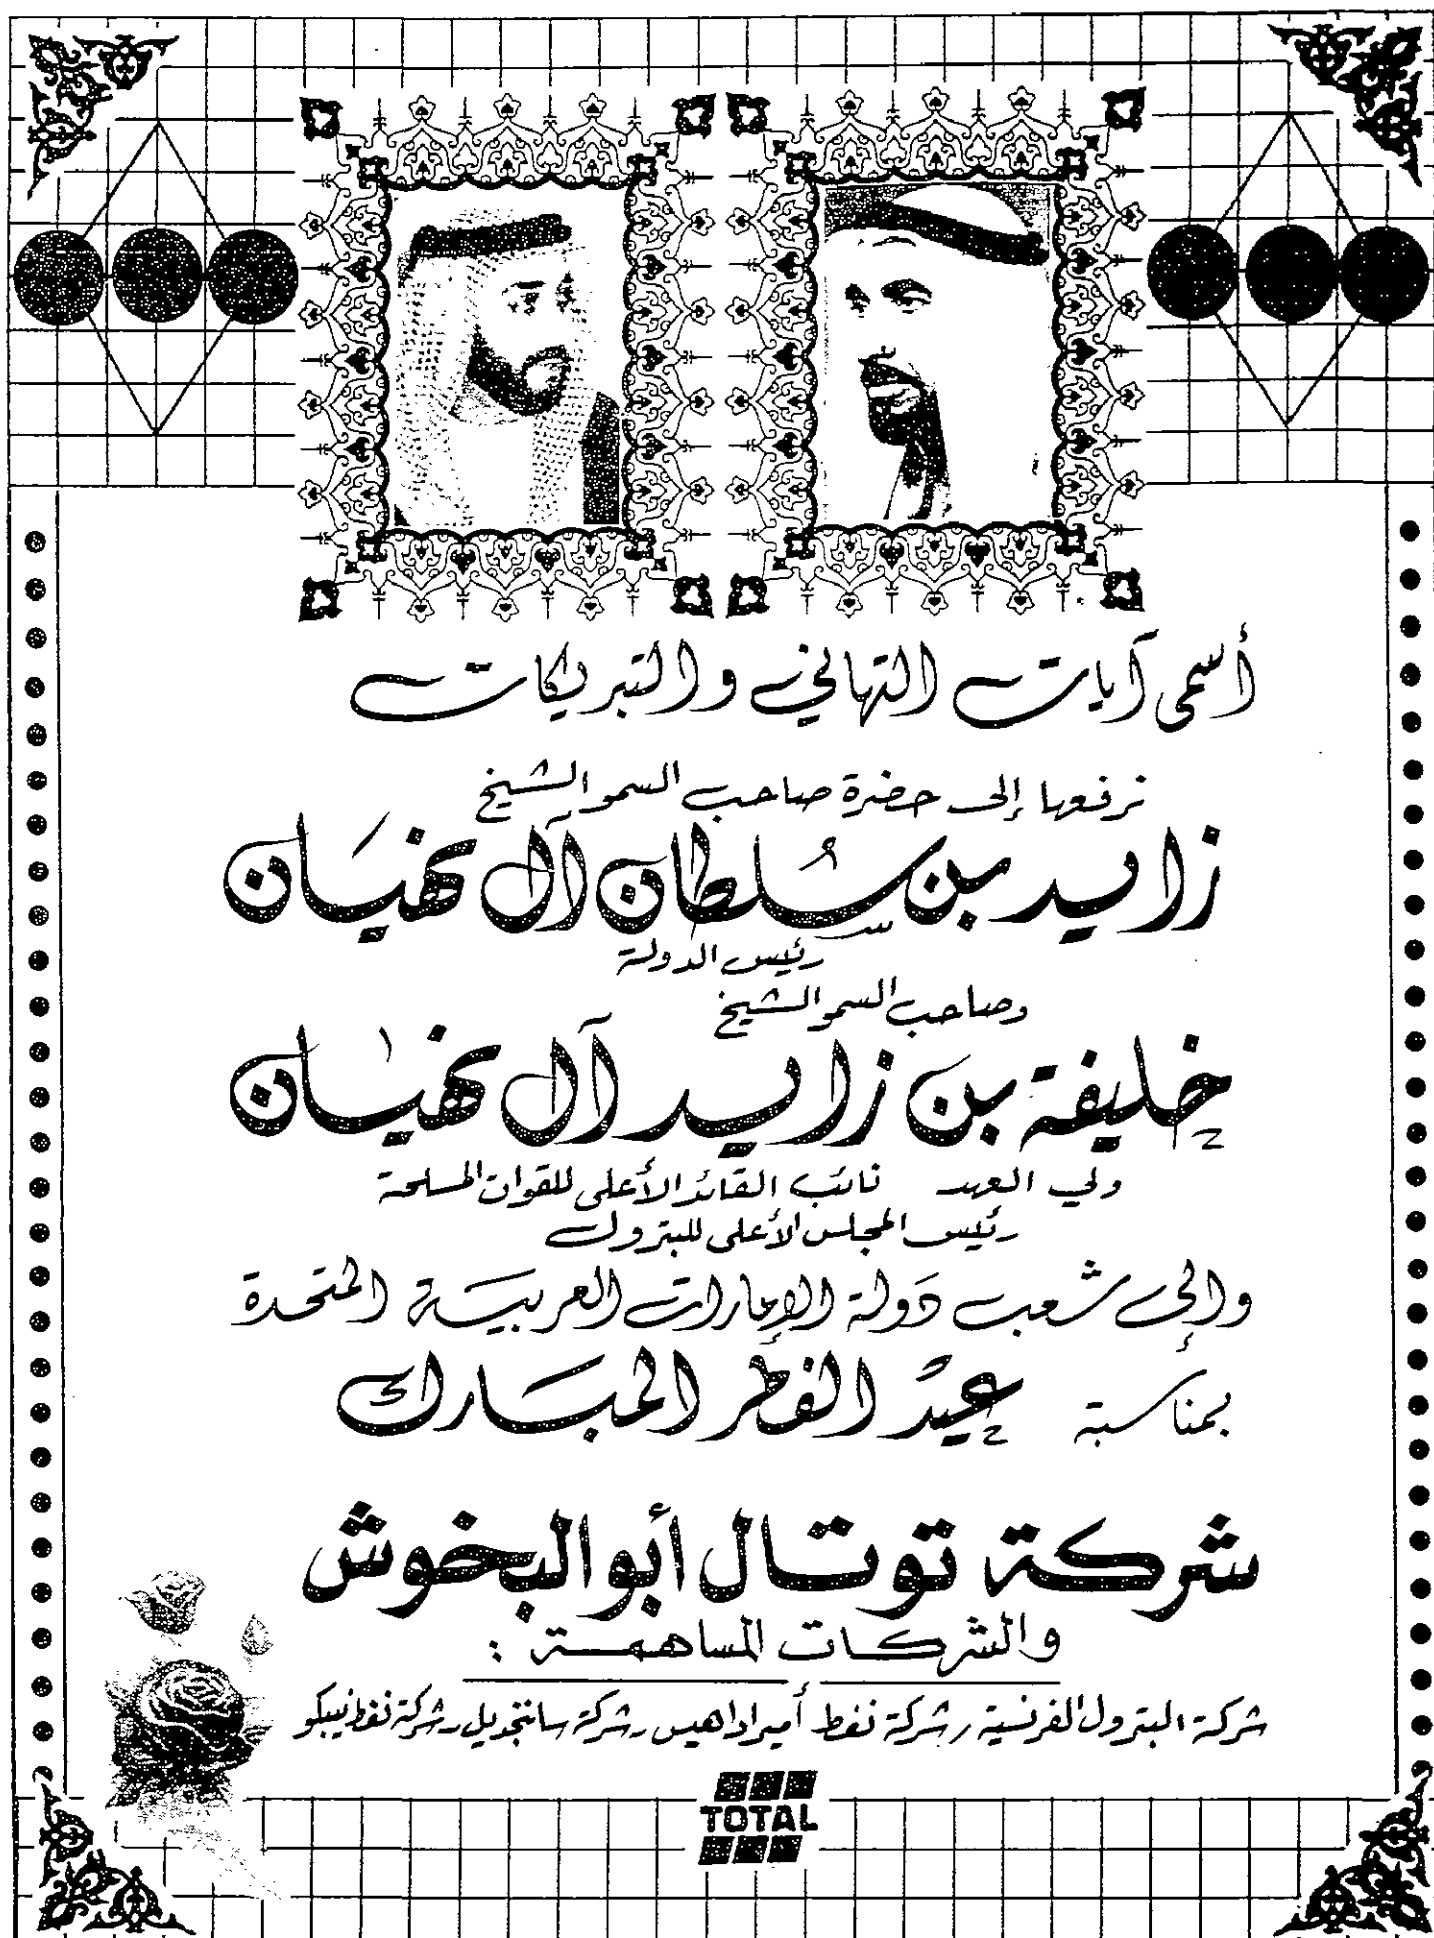 أسمى آيات التهاني والتبريكات
نرفعها إلى حضرة صاحب السمو الشيخ
زايد بن سلطان آل نهيان
رئيس الدولة
وصاحب السمو الشيخ
خليفة بن زايد آل نهيان
ولي العهد نائب القائد الأعلى للقوات المسلحة
رئيس المجلس الأعلى للبترول
وإلى شعب دولة الإمارات العربية المتحدة
بمناسبة عيد الفطر المبارك
شركة توتال أبو البخوش
والشركات المساهمة :
شركة البترول الفرنسية ، شركة نفط أميرادا هيس ، شركة سانتجويل ، شركة نفط نيبكو
TOTAL